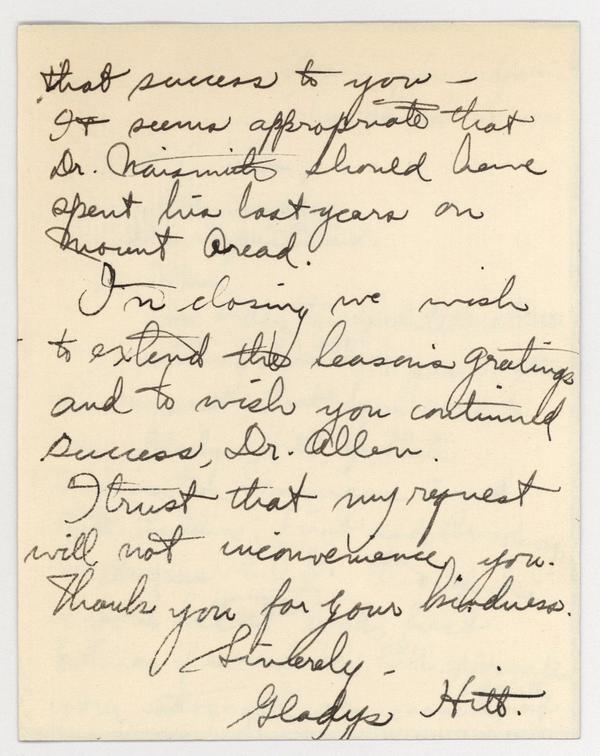 that success to you —
It seems appropriate that
Dr. Naismith should have
spent his last years on
Mount Oread.
In closing we wish
to extend the seasons gratings
and to wish you continued
success, Dr. Allen.
I trust that my request
will not inconvenience you.
Thank you for your kindness.
Sincerely —
Gladys Hitt.